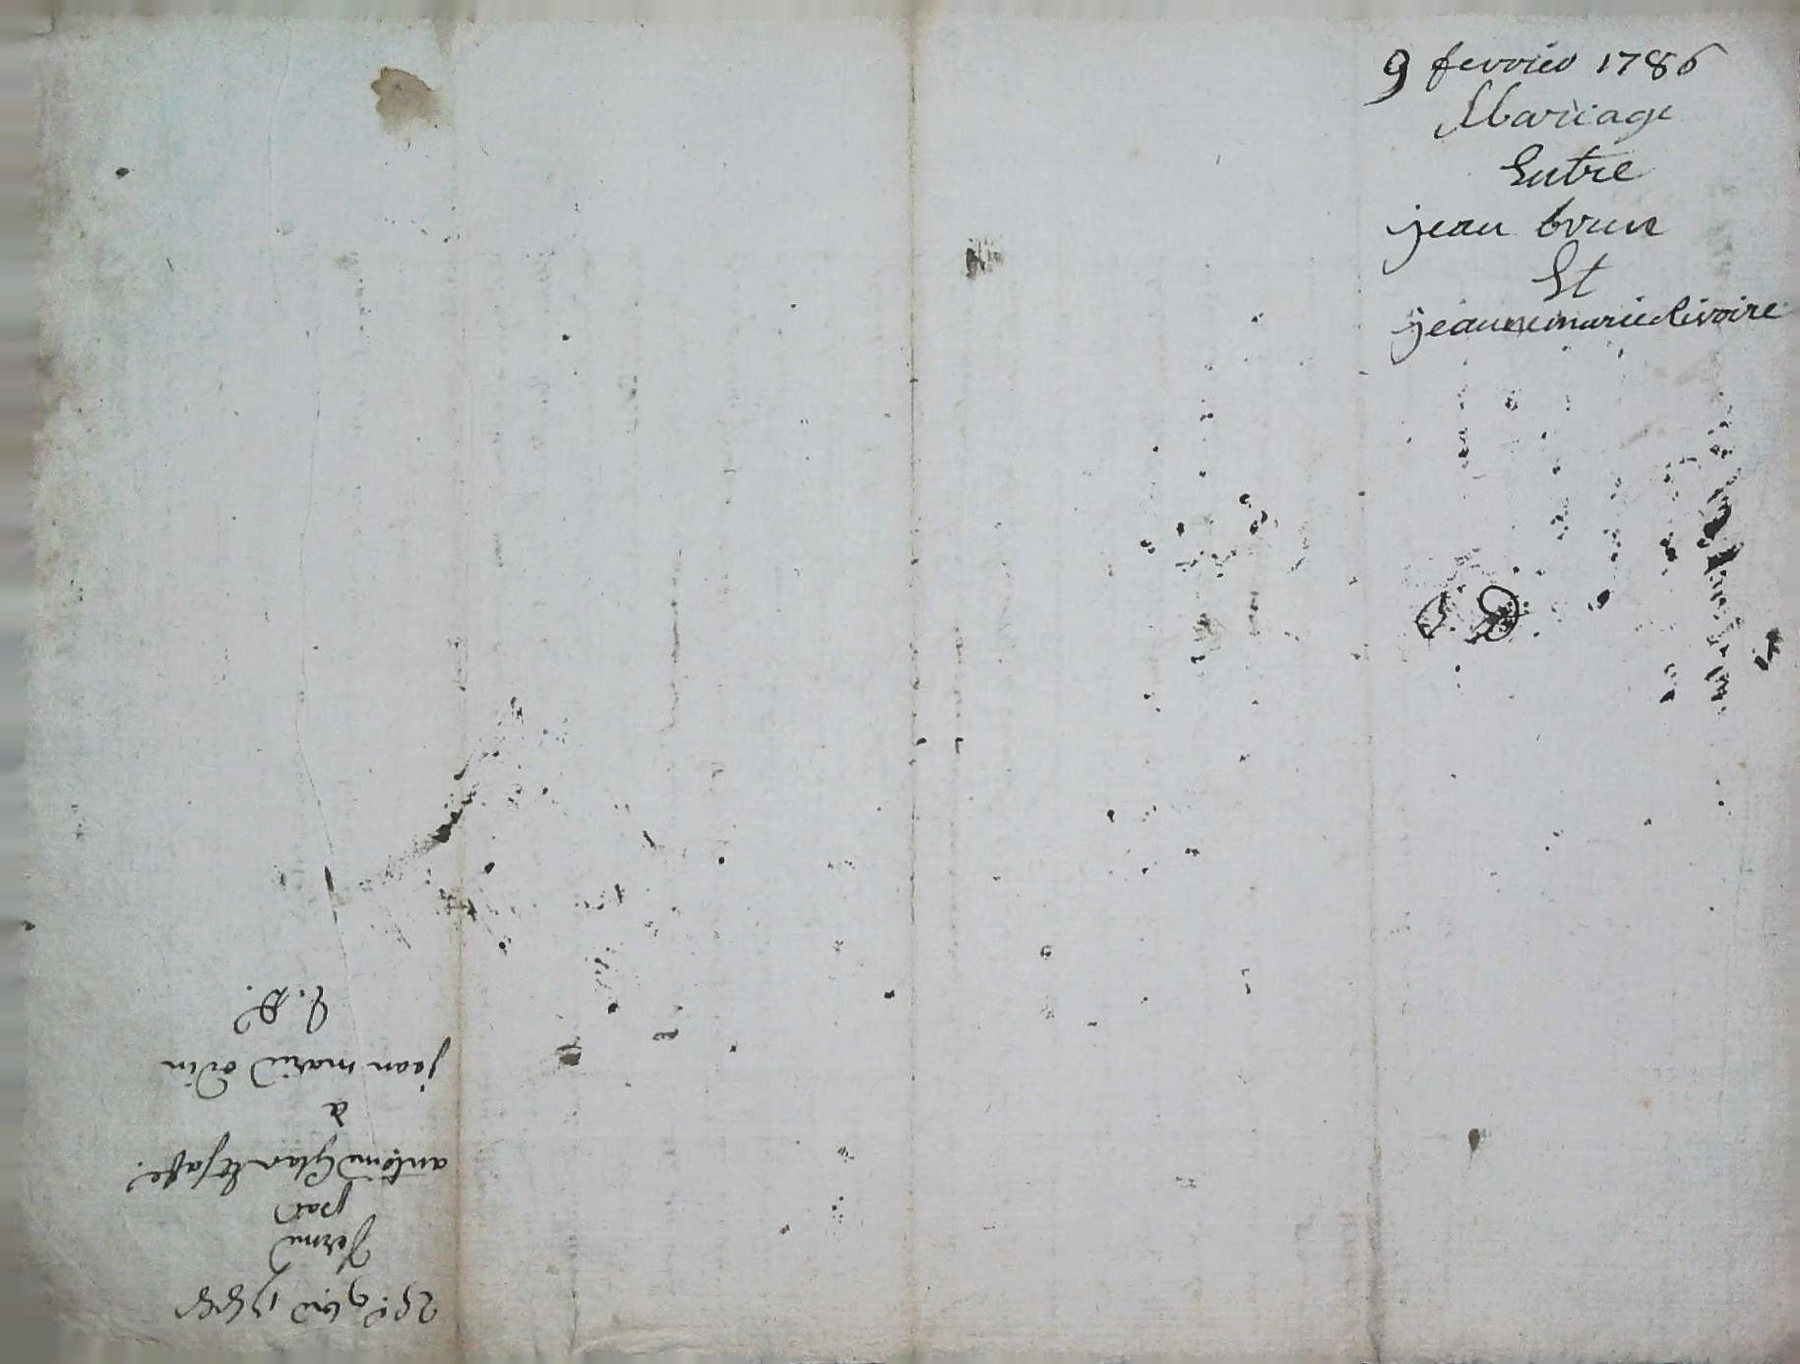 9 fevrier 1786
Mariage
Entre
jean brun
Et
jeanne marie Rivoire
ferme
par
antoine
à
jean marie odin